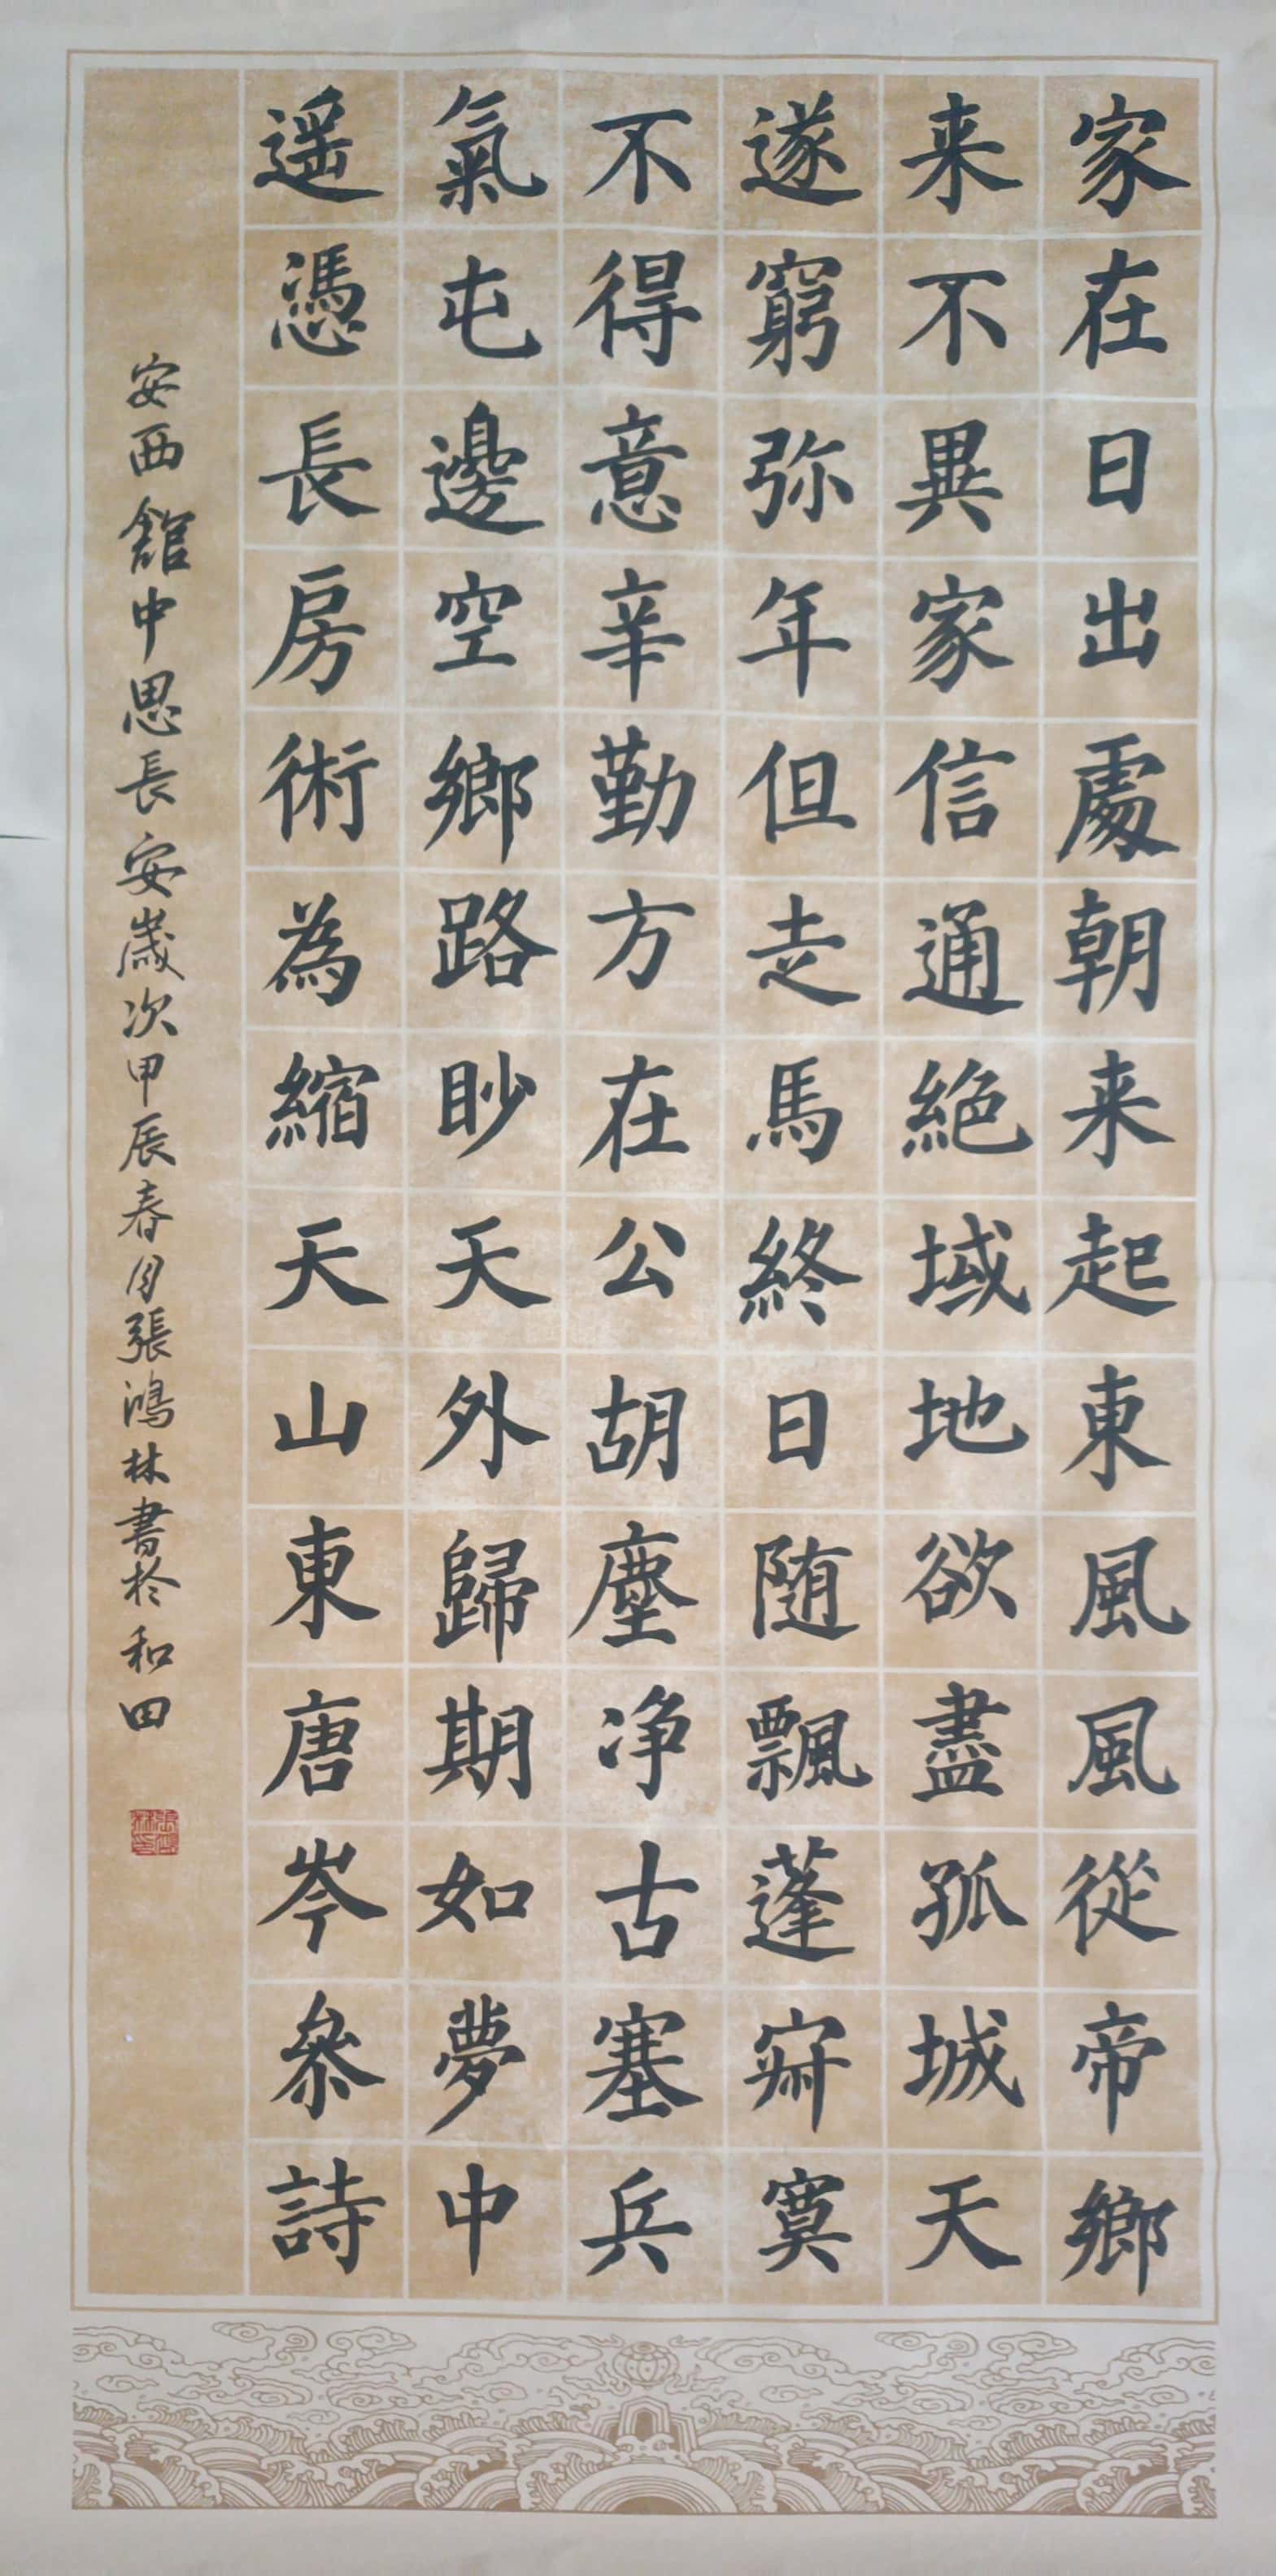 家在日出處朝来起東風風從帝鄉
来不異家信通絶域地欲盡孤城天
遂窮弥年但走馬終日随飄蓬寂寞
不得意辛勤方在公胡塵净古塞兵
氣屯邊空鄉路眇天外歸期如夢中
遥憑長房術為縮天山東唐岑參詩
安西館中思長安歲次甲辰春月張鴻林書於和田